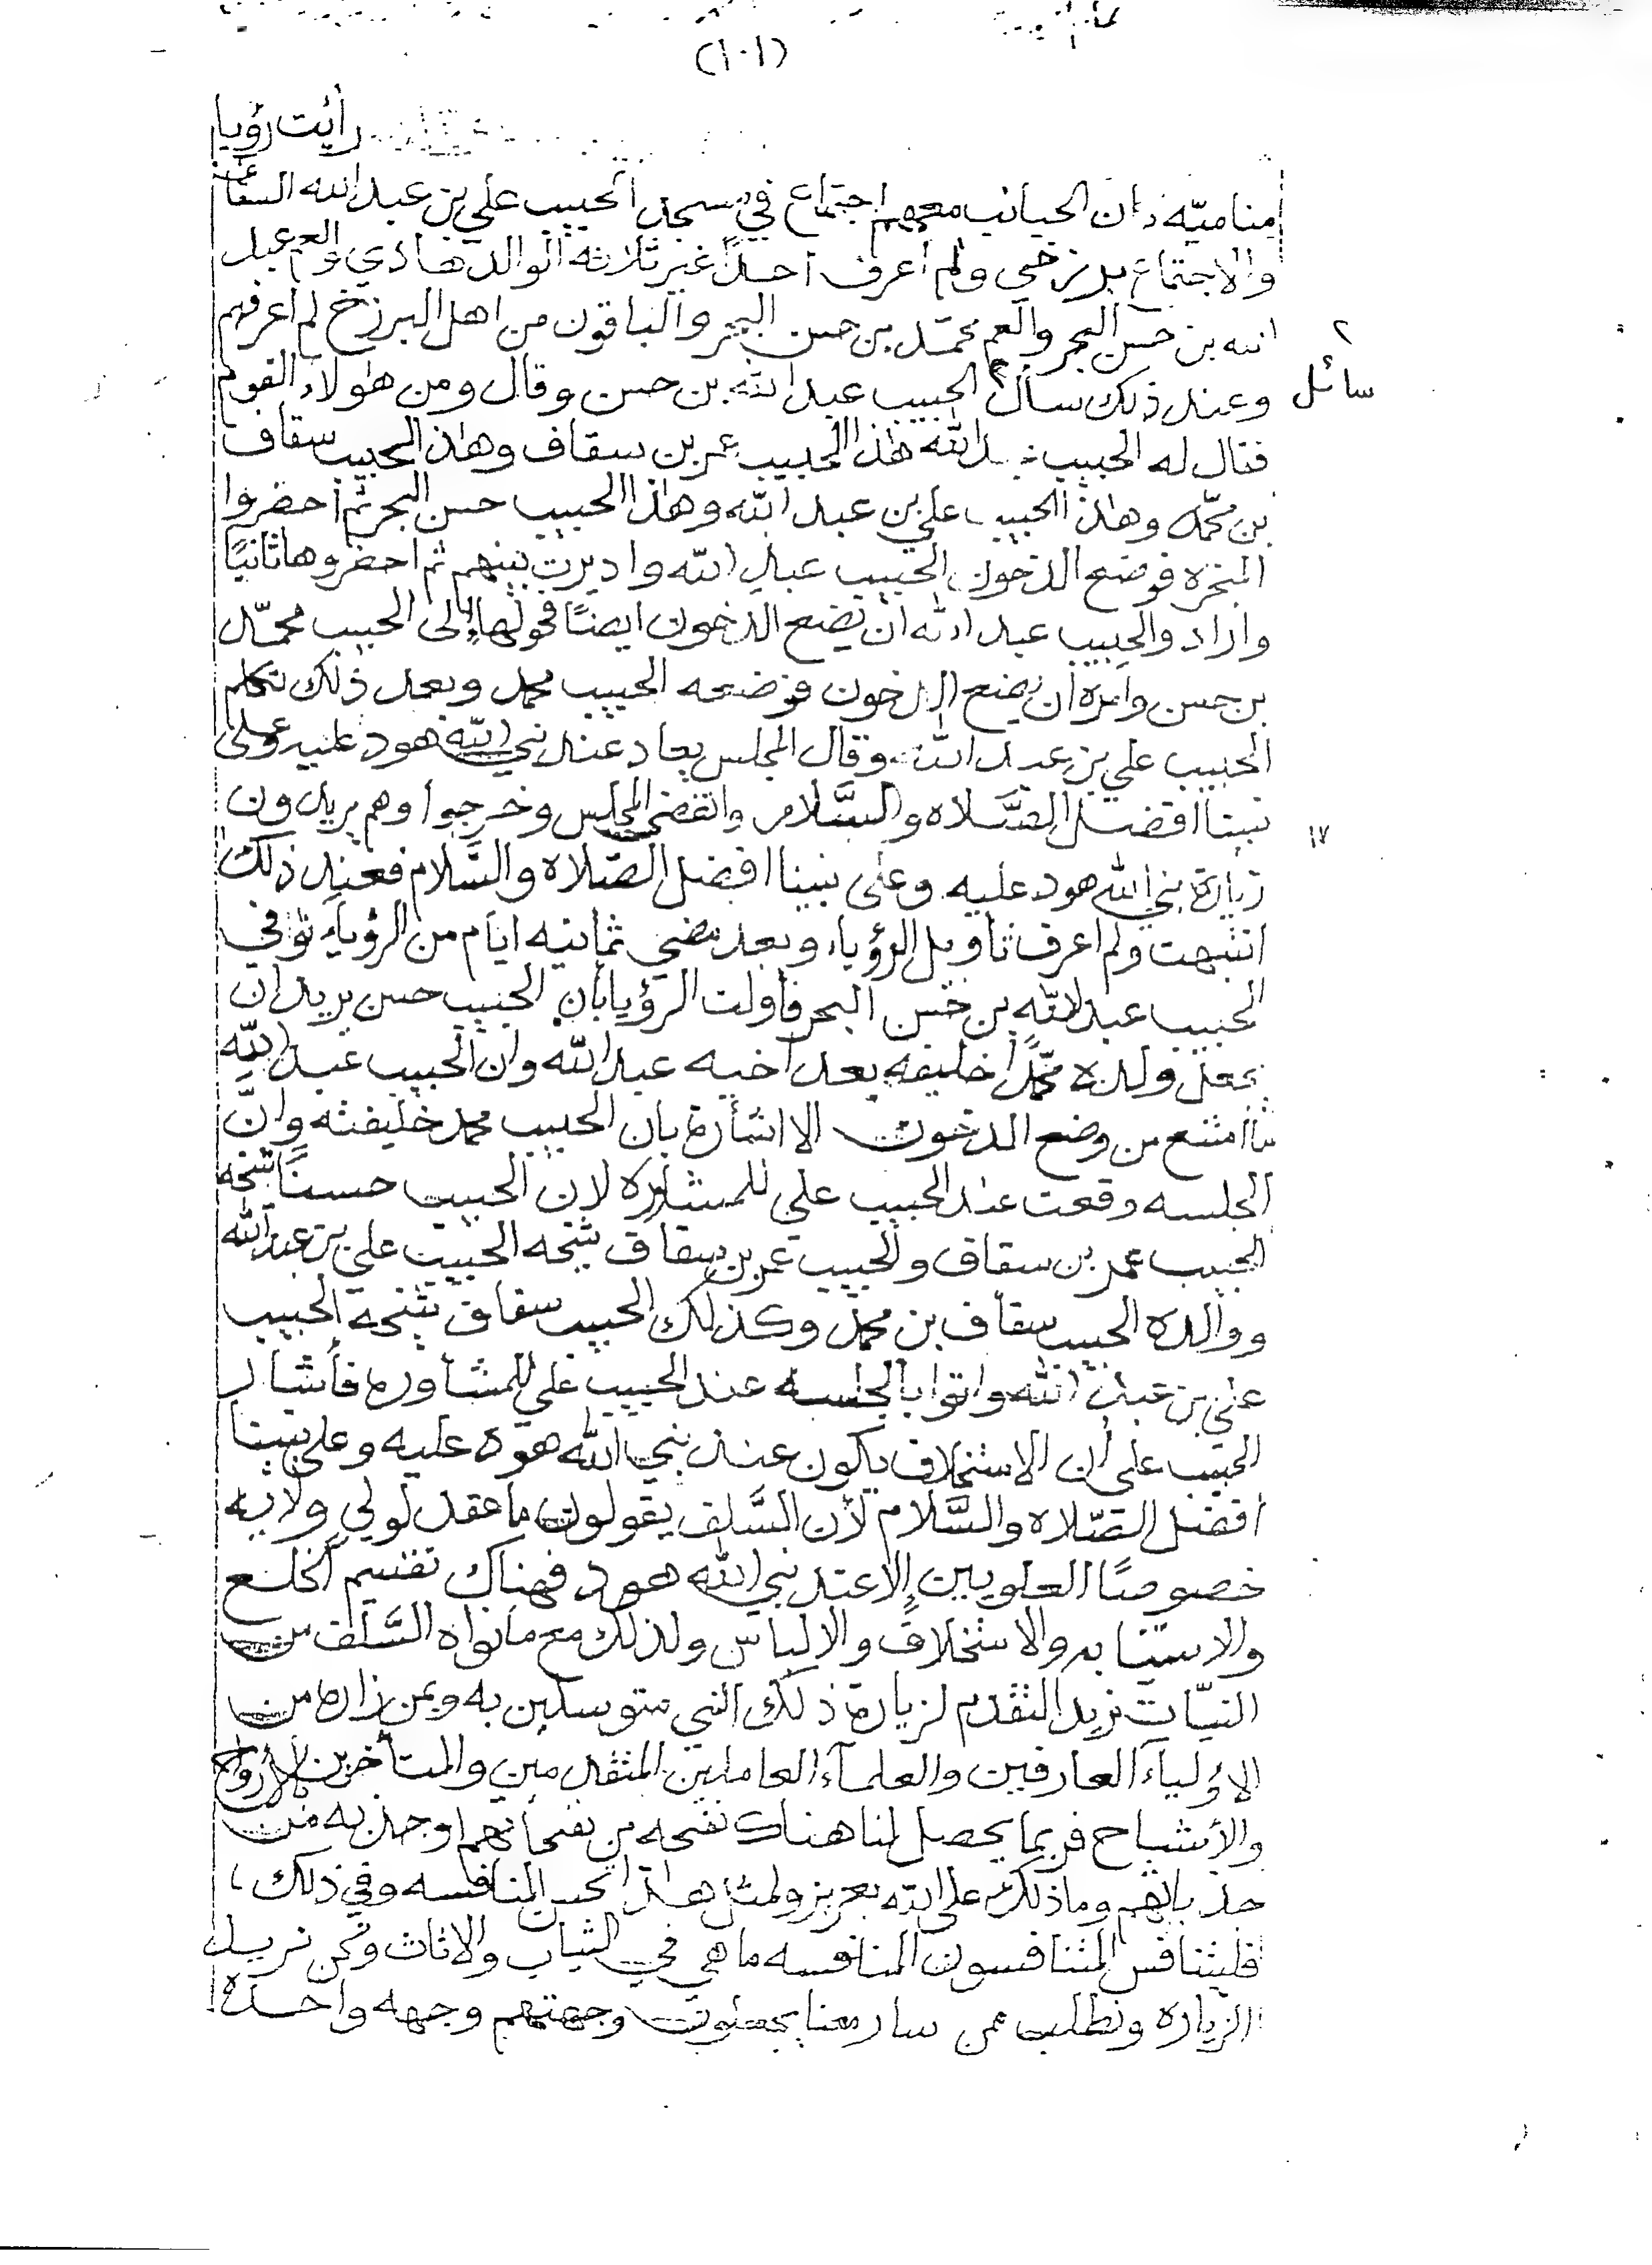 (١٠١)
رأيت رؤيا
مناميّه كان الحبائب معهم اجتماع في مسجد الحبيب علي بن عبد الله السقاف
والاجتماع برزخي ولم أعرف أحداً غير ثلاثه الوالد هادي والعم عبد
الله بن حسن البحر والعم محمد بن حسن البحر والباقون من اهل البرزخ لم اعرفهم
وعند ذلك سأل ٢ الحبيب عبد الله بن حسن وقال ومن هؤلاء القوم
٢ سائل
فقال له الحبيب عبد الله هذا الحبيب عمر بن سقاف وهذا الحبيب سقاف
بن محمّد وهذا الحبيب علي بن عبد الله وهذا الحبيب حسن البحر ثم أحضروا
المبخره فوضع الدخون الحبيب عبد الله واديرت بينهم ثم احضروها ثانيًا
وارادوا الحبيب عبد الله ان يضع الدخون ايضًا فحولها إلى الحبيب محمّد
بن حسن وأمره ان يضع الدخون فوضعه الحبيب محمد وبعد ذلك تكلم
الحبيب علي بن عبد الله وقال المجلس يعاد عند نبي الله هود عليه وعلى
نبينا افضل الصَّلاه والسَّلام وانقضى المجلس وخرجوا وهم يريدون
١٧
زيارة نبي الله هود عليه وعلى نبينا افضل الصّلاه والسَّلام فعند ذلك
انتبهت ولم اعرف تأويل الرؤياء وبعد مضي ثمانيه ايام من الرؤياء توفي
الحبيب عبد الله بن حسن البحر فأولت الرؤيا بأن الحبيب حسن يريد ان
يجعل ولده محمّداً خليفه بعد أخيه عبد الله وان الحبيب عبد الله
ما امتنع من وضع الدخون الا اشارة بان الحبيب محمد خليفته وانَّ
الجلسه وقعت عند الحبيب علي للمشاوره لان الحبيب حسنًا شيخه
الحبيب عمر بن سقاف والحبيب عمر بن سقاف شيخه الحبيب علي بن عبد الله
ووالده الحبيب سقاف بن محمد وكذلك الحبيب سقاف شيخه الحبيب
علي بن عبد الله واتوا بالجلسه عند الحبيب علي للمشاورة فأشار
الحبيب علي أن الاستخلاف يكون عند نبي الله هود عليه وعلى نبينا
أفضل الصّلاه والسَّلام لأن السَّلف يقولون ما عقد لولي ولايه
خصوصًا العلويين إلا عند نبي الله هود فهناك تقسيم الخلع
والاستنابه والاستخلاف والالباس ولذلك مع مانواه السَّلف من
النيّات نريد التقدم لزيارة ذلك النبي متوسلين به وبمن زاره من
الأولياء العارفين والعلمآء العاملين المتقدمين والمتأخرين بالأرواح
والأشباح فربما يحصل لنا هناك نفحه من نفحاتهم او جذبه من
جذباتهم وما ذلك على الله بعزيز ولمثل هذا تحسن المنافسه وفي ذلك
فليتنافس المتنافسون المنافسه ما هي في الثياب والاثاث ونحن نريد
الزياره ونطلب ممن سار معنا يجعلون وجهتهم وجهه واحده